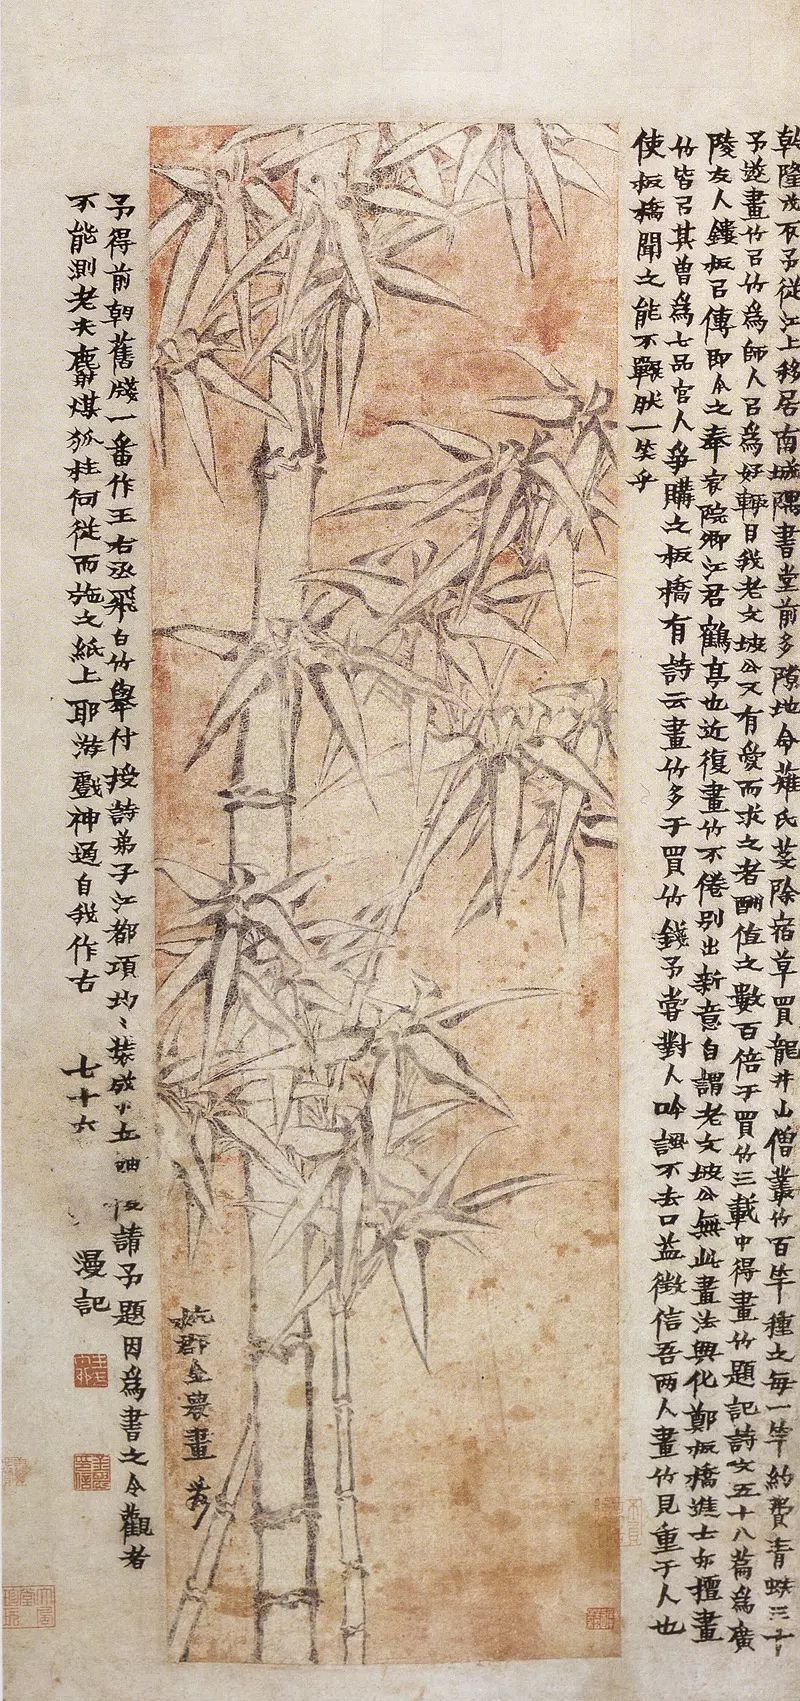 乾隆戊予從江上移居南城隅書堂前多隙地令薙氏芟除宿草買龍井山僧叢竹百竿種之每一竿約費青蚨三十
予遂畫竹㠯竹爲師人㠯爲好輒目我老文坡公又有愛而求之者酬值之數百倍于買竹三載中得畫竹題記詩文五十八篇爲廣
陵友人鏤板㠯傳即今之奉宸院卿江君鶴亭也近復畫竹不倦別出新意自謂老文坡公無此畫法興化鄭板橋進士亦擅畫
竹皆㠯其曾爲七品官人爭購之板橋有詩云畫竹多于買竹錢予嘗對人吟諷不去口益徵信吾兩人畫竹見重于人也
使板橋聞之能不囅然一笑乎
杭郡金農畫
予得前朝舊牋一番作王右丞飛白竹舉付授詩弟子江都項均〻裝成小立軸復請予題因爲書之令觀者
不能測老夫麝煤狐柱何從而施之紙上耶游戲神通自我作古 七十六 漫記